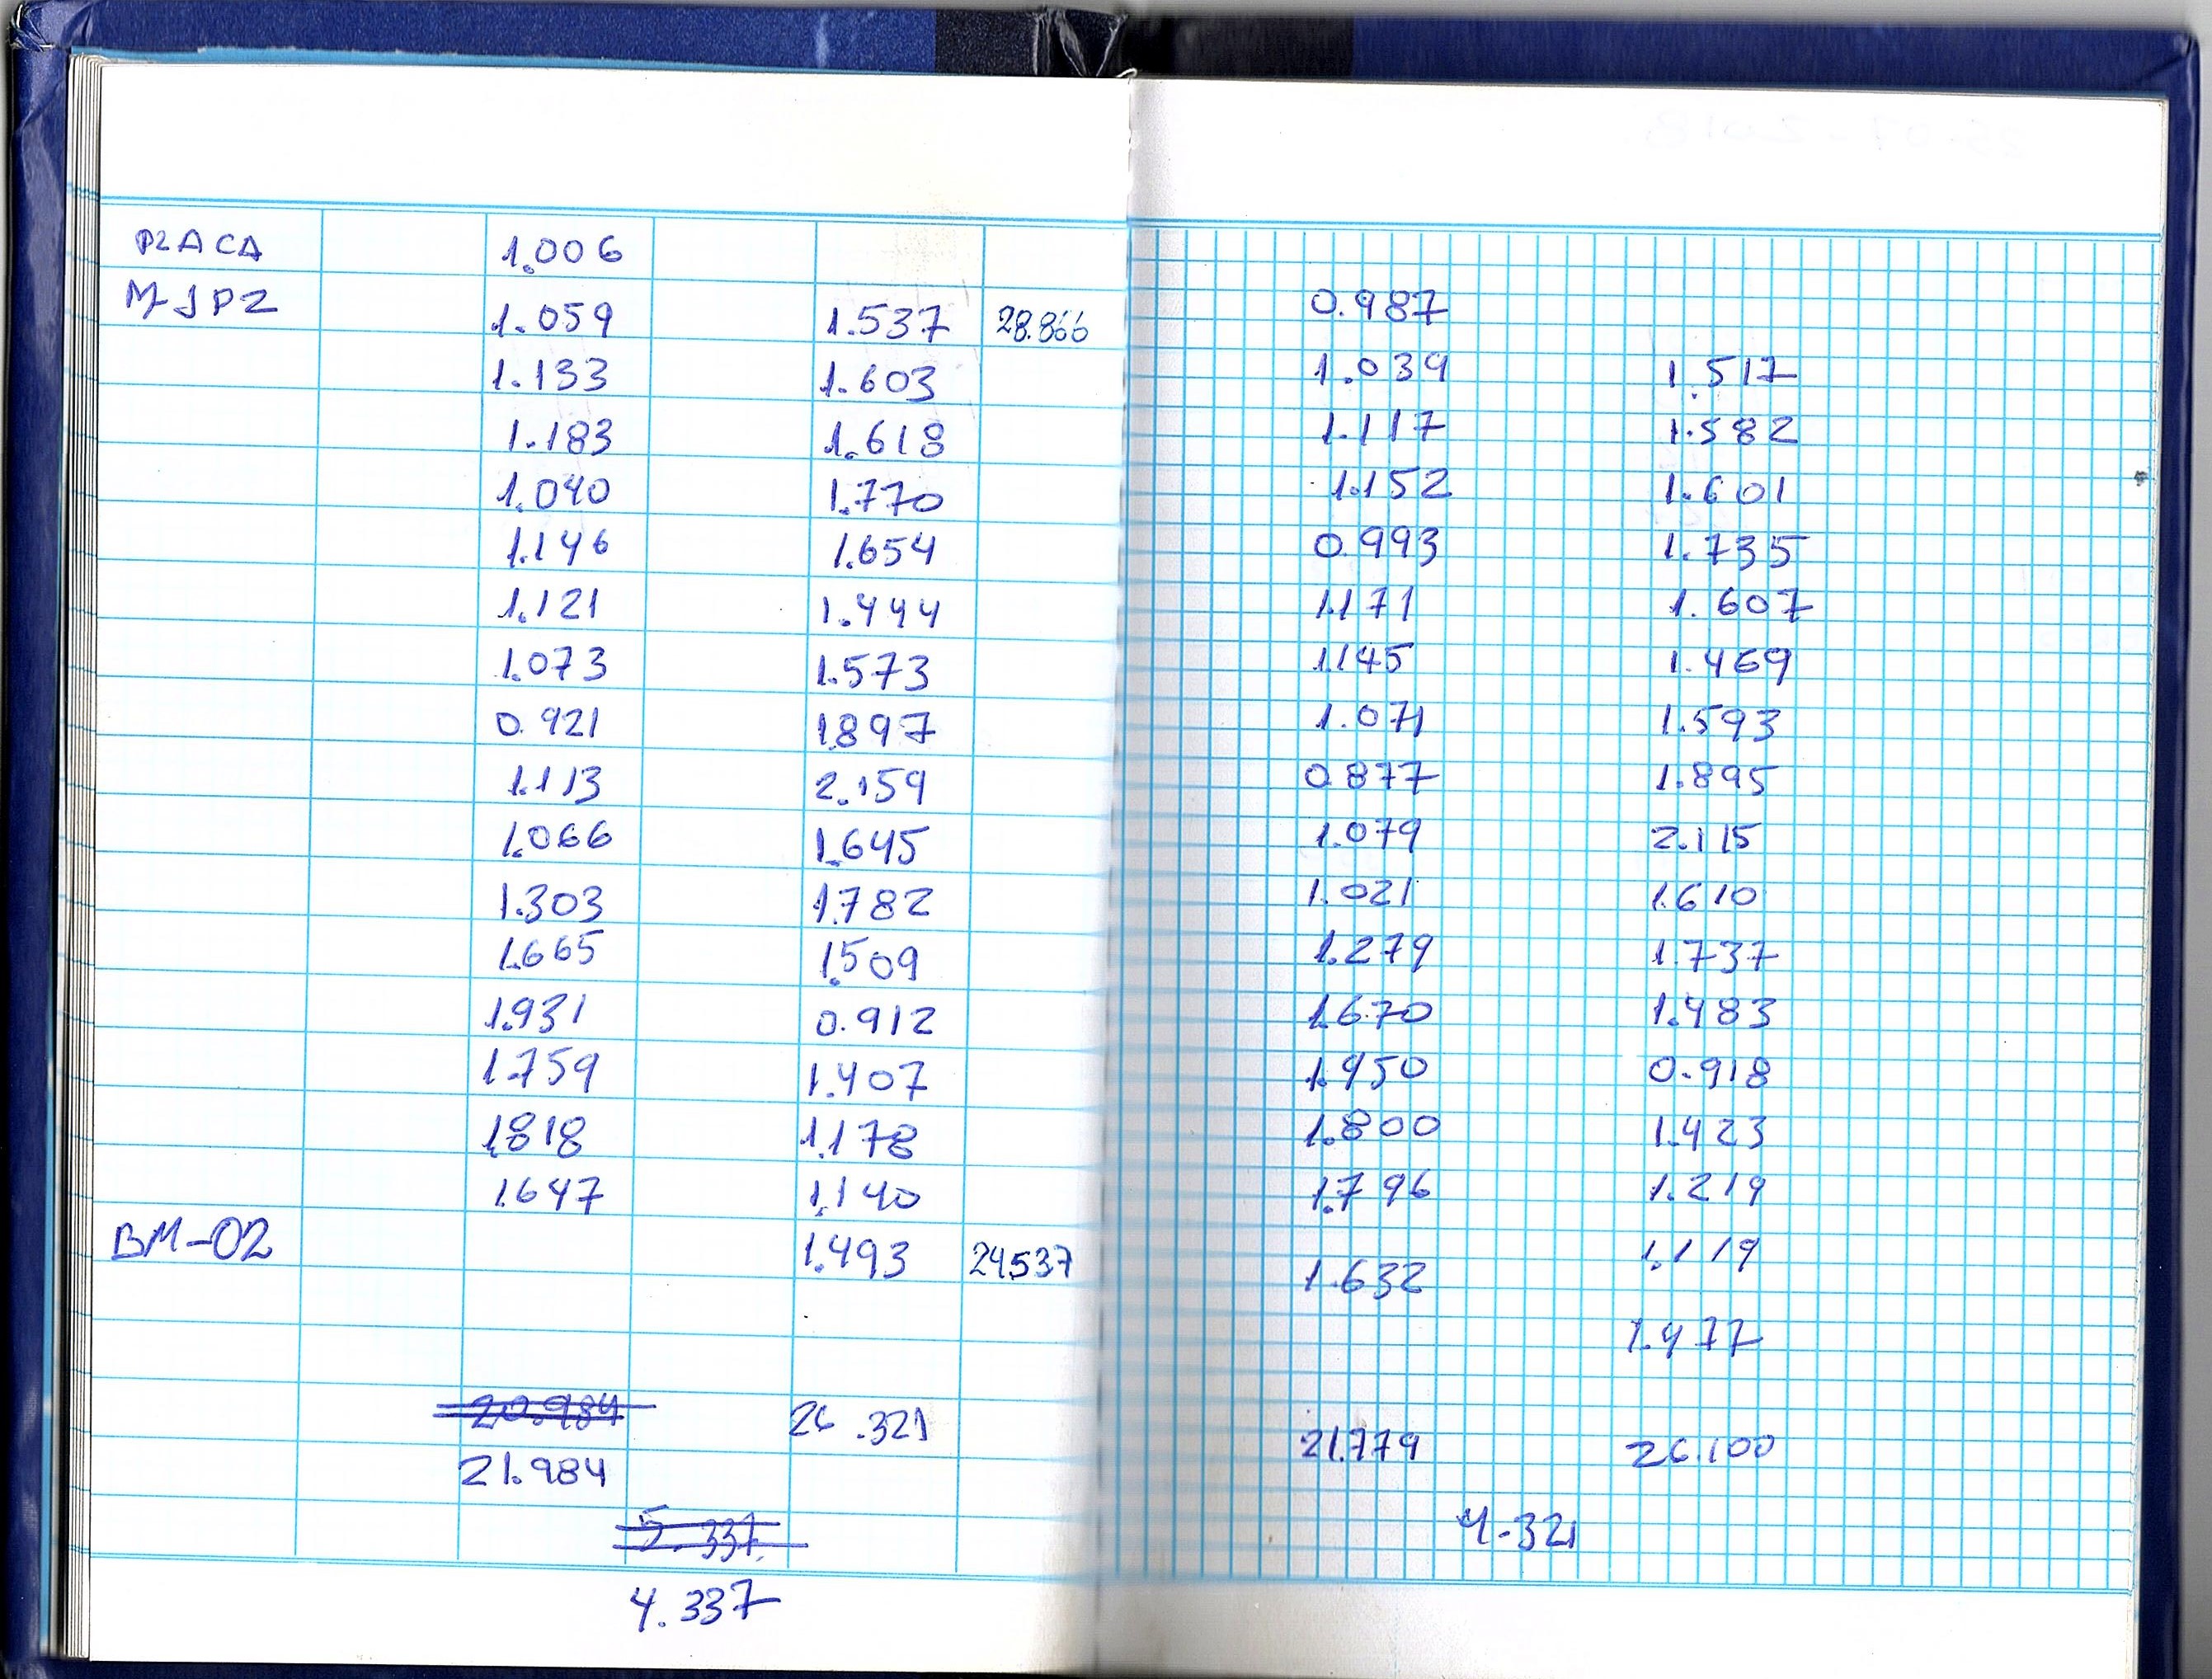 PLACA 1.006
M-JP2 1.059 1.537 28.866
1.133 1.603
1.183 1.618
1.040 1.770
1.146 1.654
1.121 1.444
1.073 1.573
0.921 1.897
1.113 2.159
1.066 1.645
1.303 1.782
1.665 1.509
1.931 0.912
1.759 1.407
1.818 1.178
1.647 1.140
BM-02 1.493 24.537
20.984 26.321
21.984
5.337
4.337
0.987
1.039 1.517
1.117 1.582
1.152 1.601
0.993 1.735
1.171 1.607
1.145 1.469
1.071 1.593
0.877 1.895
1.079 2.115
1.021 1.610
1.279 1.737
1.670 1.483
1.950 0.918
1.800 1.423
1.796 1.219
1.632 1.119
1.477
21.779 26.100
4.321